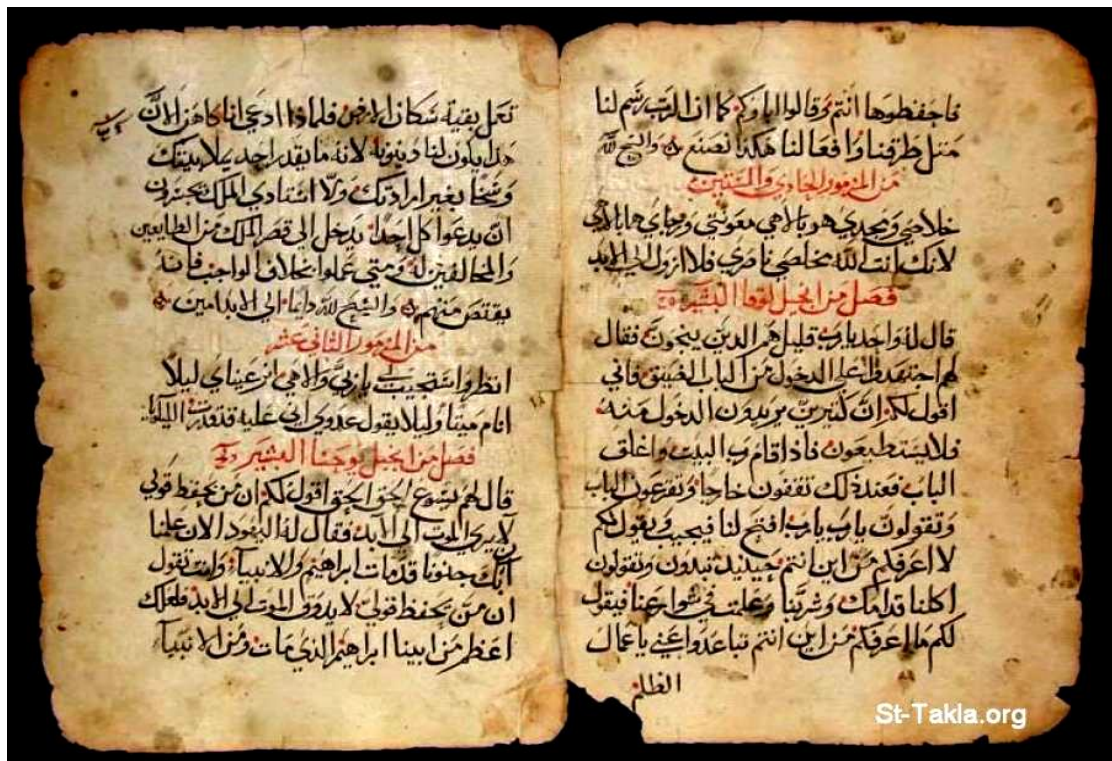 فاحفظوها انتم وقالوا اباوكم كما ان الرب رسم لنا
مثل طرقنا وافعالنا هكذا نصنع والسبح لله
من المزمور الحادي والستين
خلاصي ومجدي هو بالاهي معونتي ورجاي هابالاهي
لانك انت الله مخلصي ناصري فلا ازول الي الابد
فصل من انجيل لوقا البشير
قال له واحد يارب قليل هم الدين ينجون فقال
لهم اجتهدوا علي الدخول من الباب الضيق فاني
اقول لكم ان كثيرين يريدون الدخول منه
فلا يستطيعون فاذا قام رب البيت واغلق
الباب فعند ذلك تقفون خارجا وتقرعون الباب
وتقولون يارب يارب افتح لنا فيجيب ويقول لكم
لا اعرفكم من اين انتم حينيذ تبدون وتقولون
اكلنا قدامك وشربنا وعلمت في شوارعنا فيقول
لكم ما اعرفكم من اين انتم تباعدوا عني يا عمال
الظلم
تعل بقية سكان الارض فلماذا ادعي انا كاهن الان
هل يكون لنا دينونة لانه ما يقدر احد يملا بيتك
وسخا بغير ارادتك ولا استادي الملك يجسرون
ان يدعوا كل احد يدخل الي قصر الملك من الطايعين
والمخالفين له ومتي عملوا بخلاف الواجب فانه
يقتص منهم والسبح لله دايما الي الابد امين
من المزمور الثاني عشر
انظر واستجيب لي يا ربي والاهي انر عيناي ليلا
انام ميتا وليلا يقول عدوي اني عليه قد قدرت الليلويا
فصل من انجيل يوحنا البشير
قال لهم يسوع الحق الحق اقول لكم ان من يحفظ قولي
لا يري الموت الي الابد فقال له اليهود الان علمنا
ان بك جنونا قد مات ابراهيم والانبياء وانت تقول
ان من يحفظ قولي لا يدوق الموت الي الابد فلعلك
اعظم من ابينا ابراهيم الذي مات ومن الانبياء
St-Takla.org